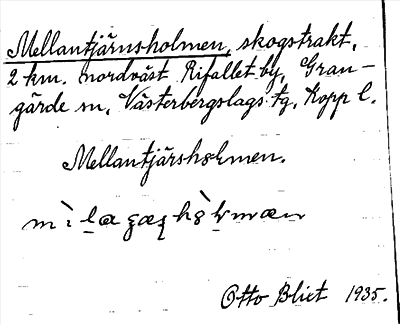 Mellantjärnsholmen, skogstrakt,
2 km. nordväst Rifallet by, Gran-
gärde sn, Västerbergslags tg, Kopp l.
Mellantjärsholmen.
Otto Blixt 1935.